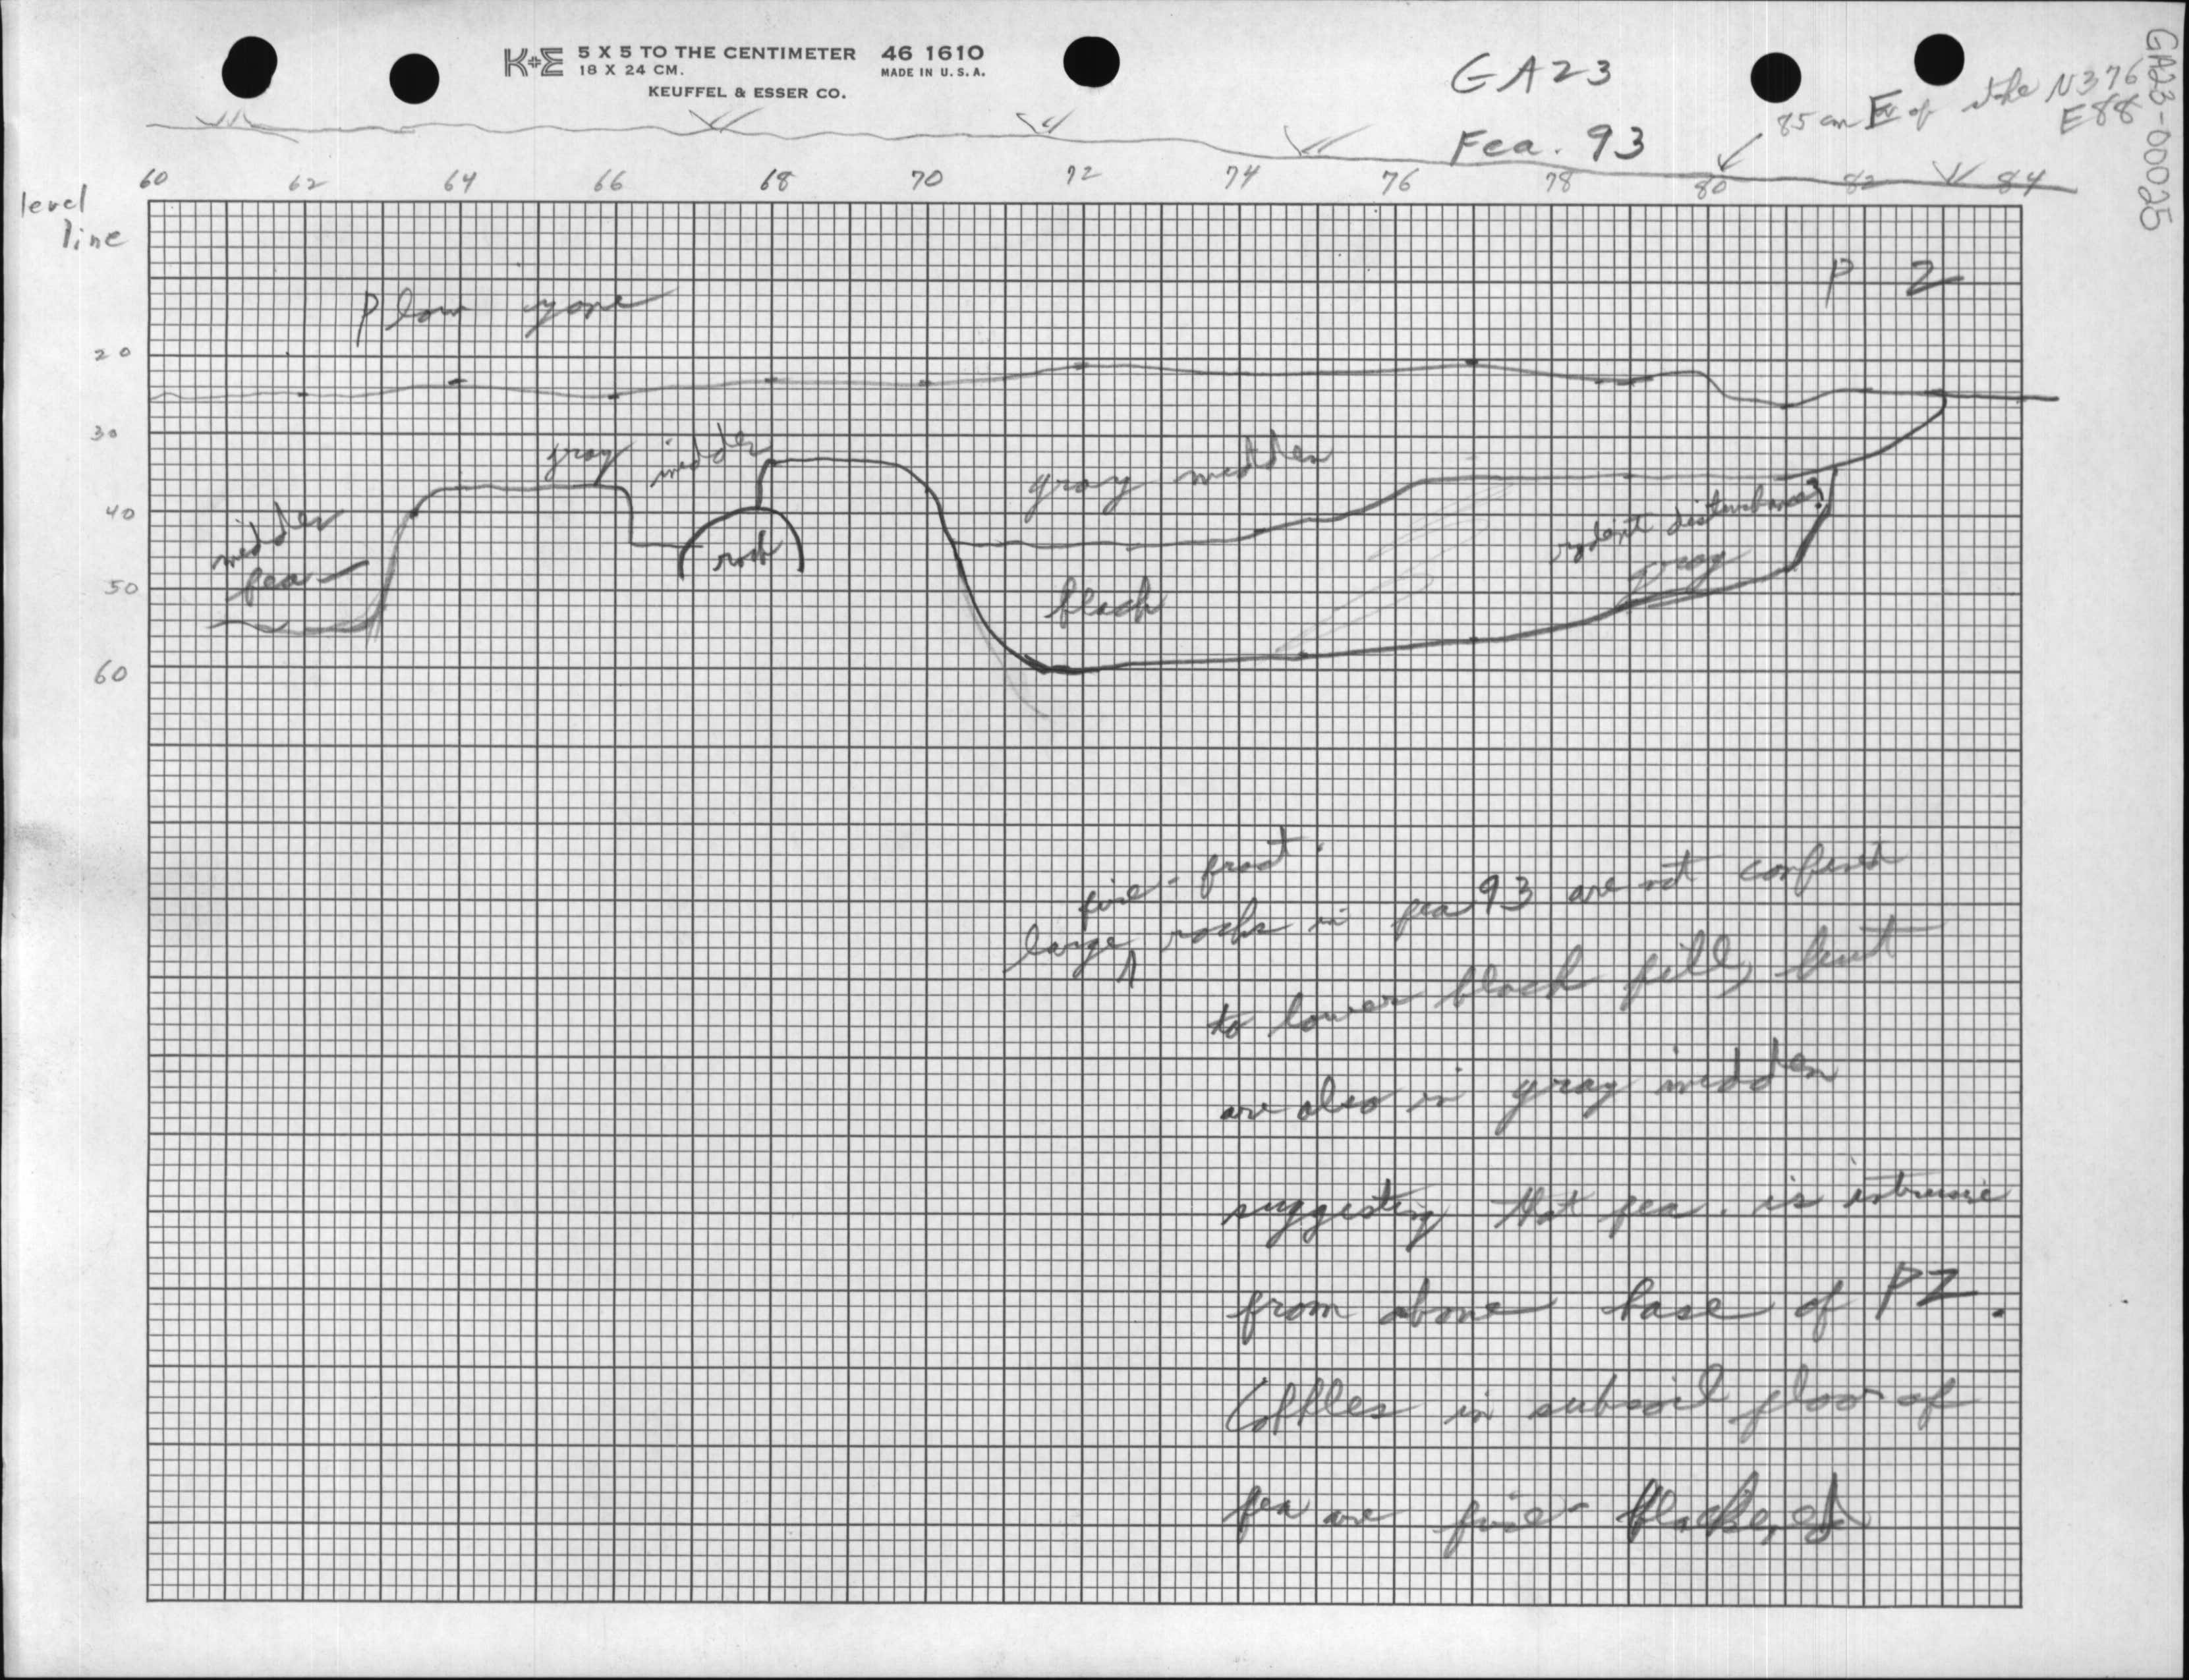 K+E 5 X 5 TO THE CENTIMETER 46 1610
18 X 24 CM. MADE IN U.S.A.
KEUFFEL & ESSER CO.
GA23
Fea. 93
85 cm E of the N376
E88
GA23-00025
60 62 64 66 68 70 72 74 76 78 80 82 84
level
line
Plow zone
PZ
20
30
40
50
60
gray midden
gray midden
midden
fea
rock
black
rodent disturbance?
gray
fire-fract.
large ^ rocks in fea 93 are not confined
to lower black fill, but
are also in gray midden
suggesting that fea. is intrusive
from above base of PZ.
Cobbles in subsoil floor of
fea are fire-blackened